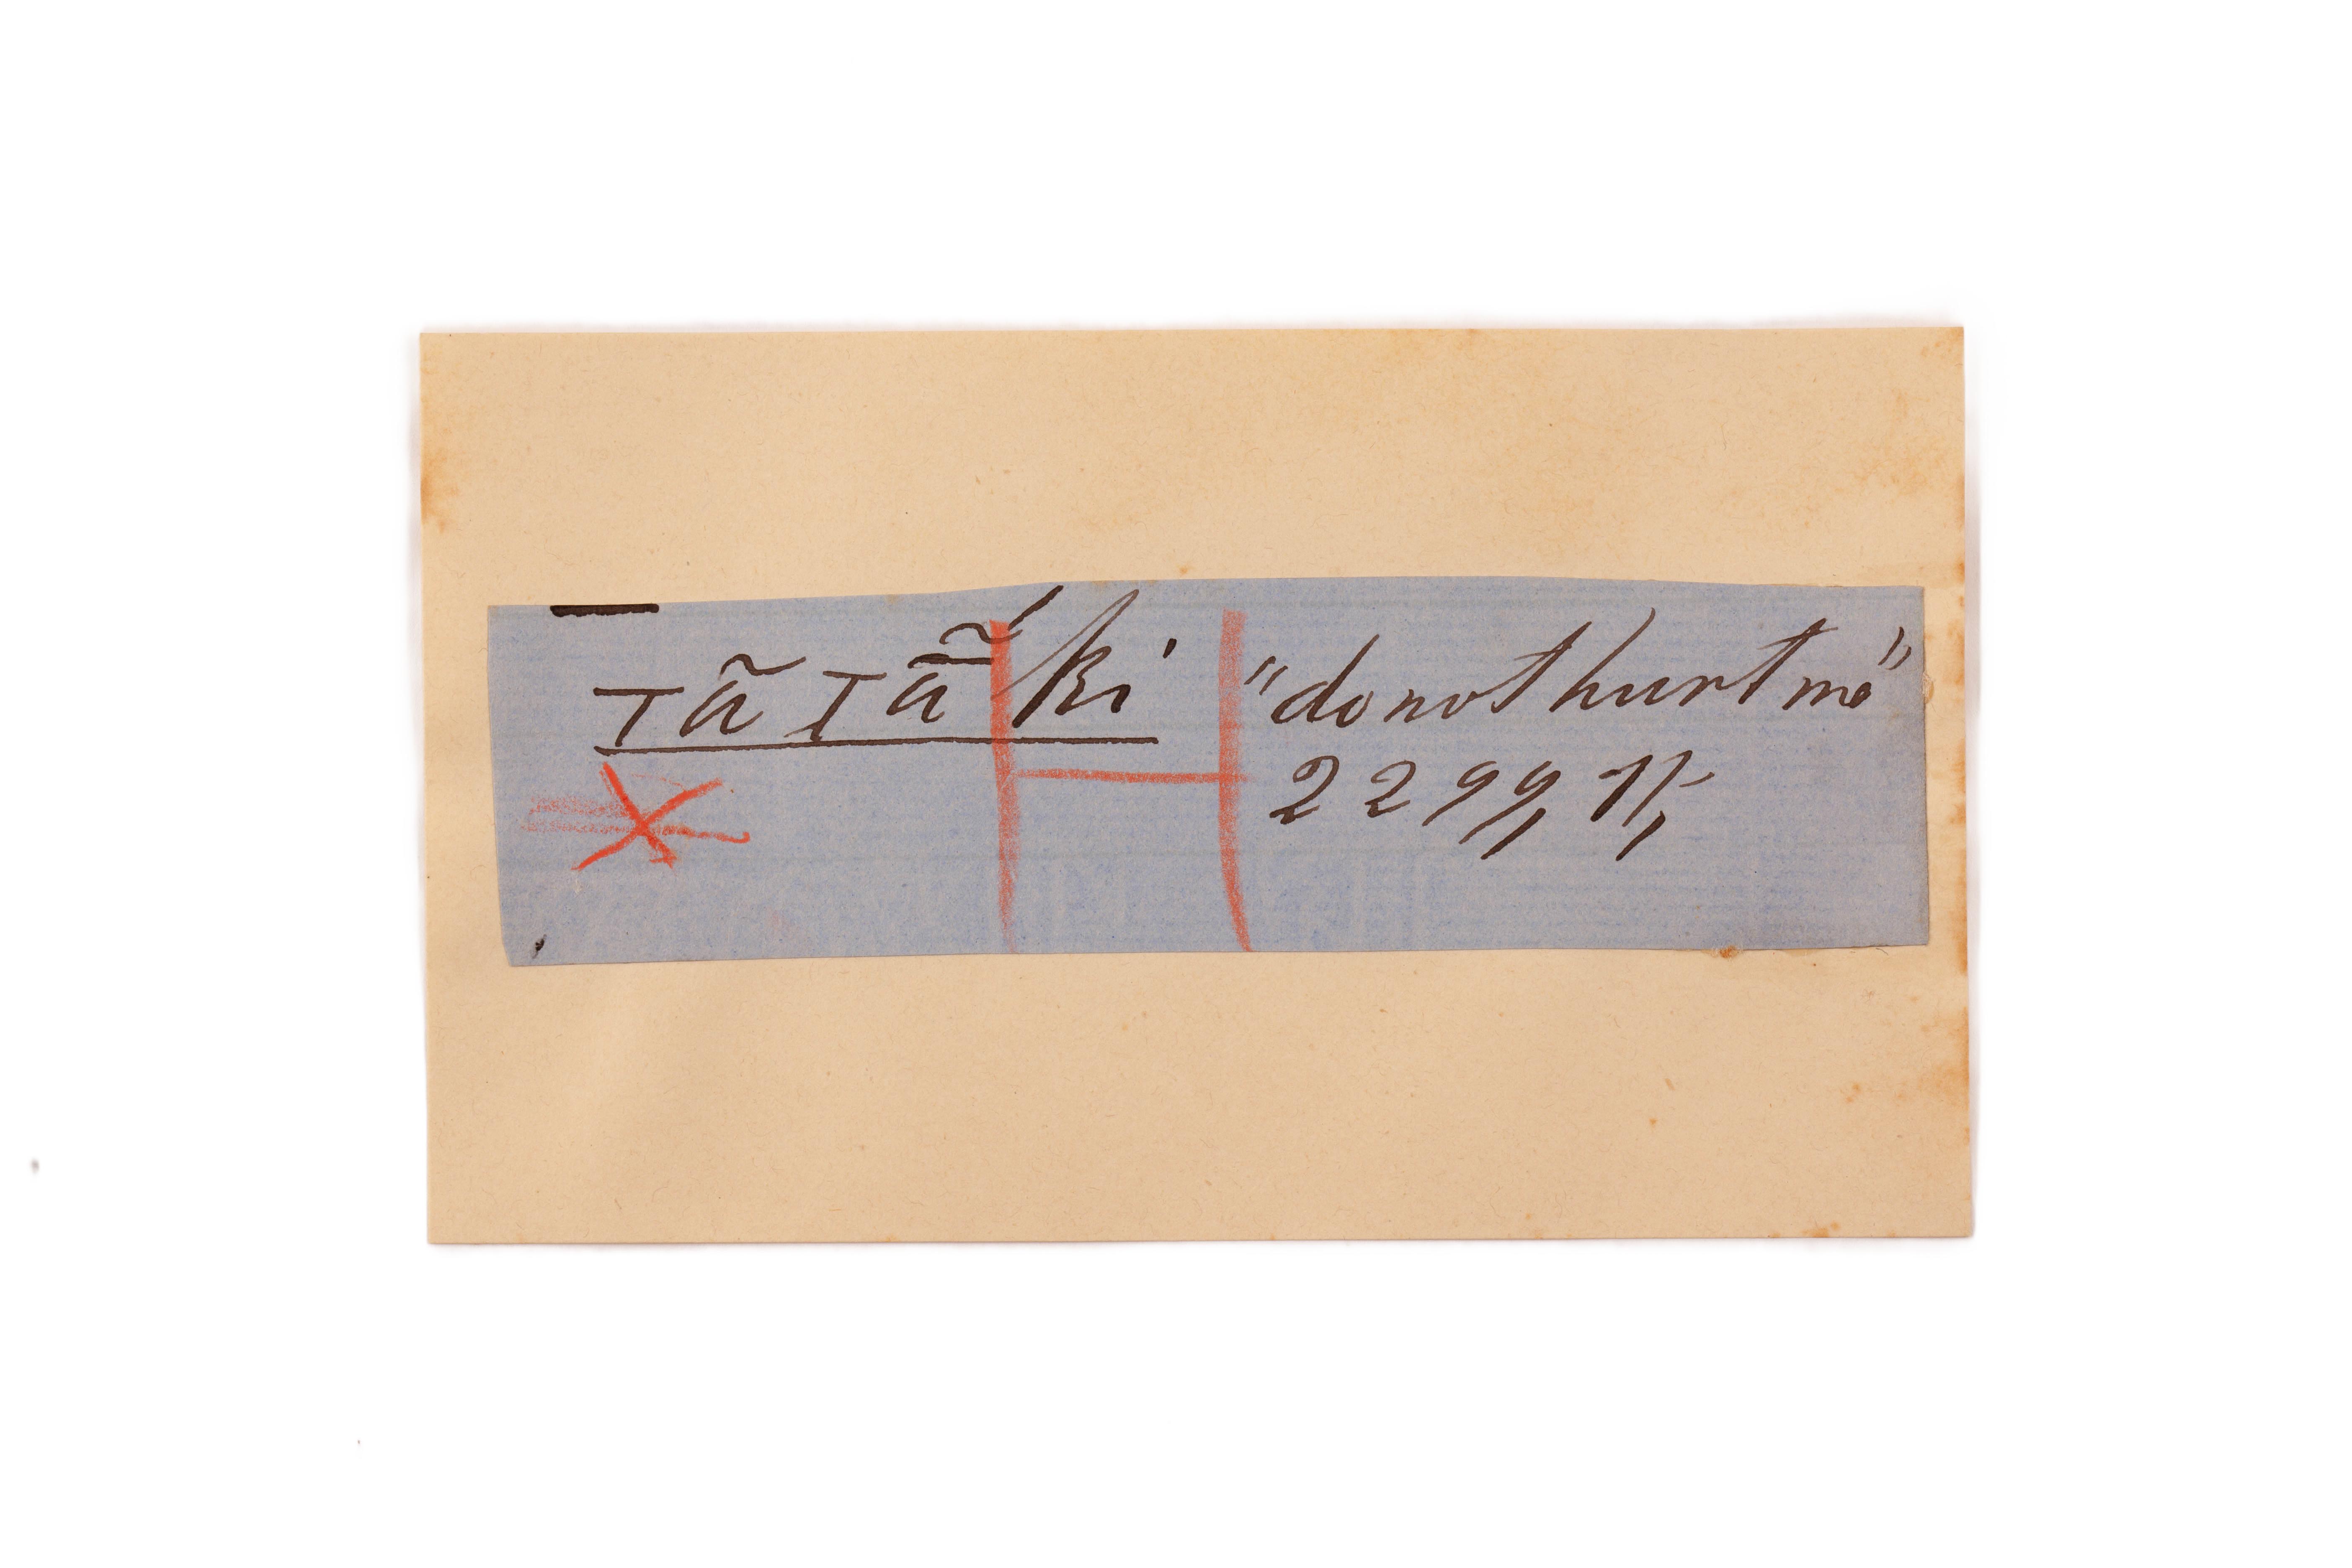 Tã Tã ki "do not hurt me"
2299, 15,